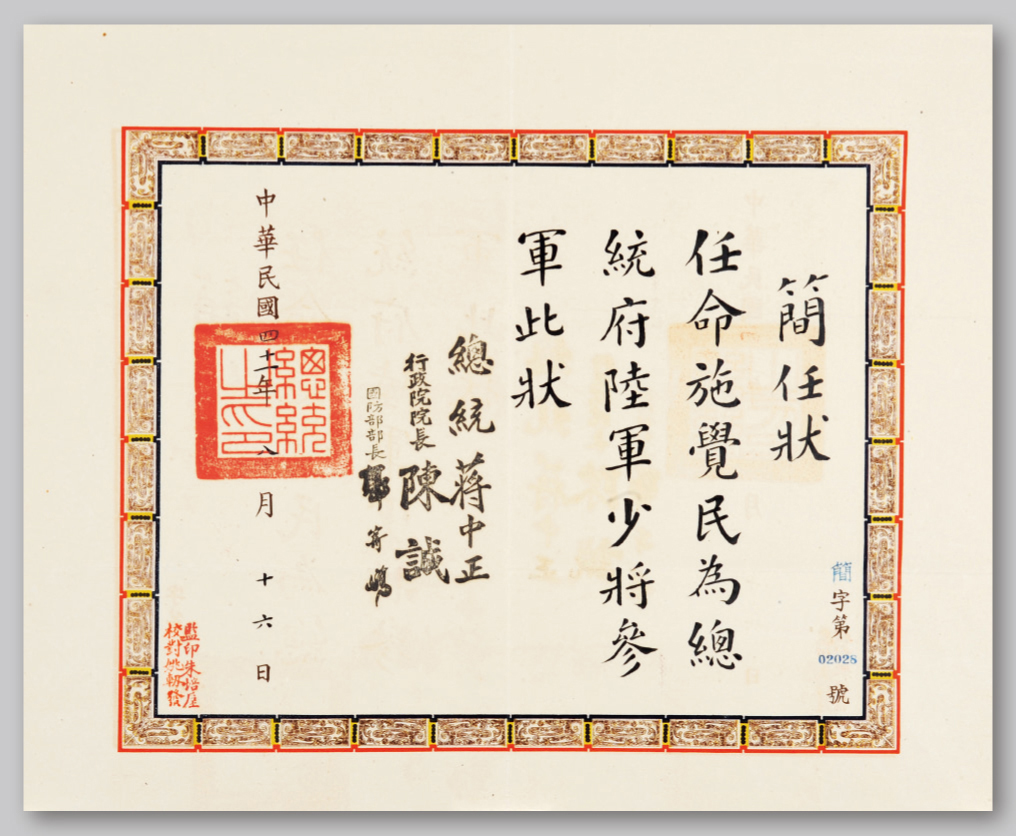 簡字第02028號
簡任狀
任命施覺民為總
統府陸軍少將參
軍此狀
總統蔣中正
行政院院長陳誠
國防部部長郭寄嶠
中華民國四十一年八月十六日
總統之印
監印朱
校對姚